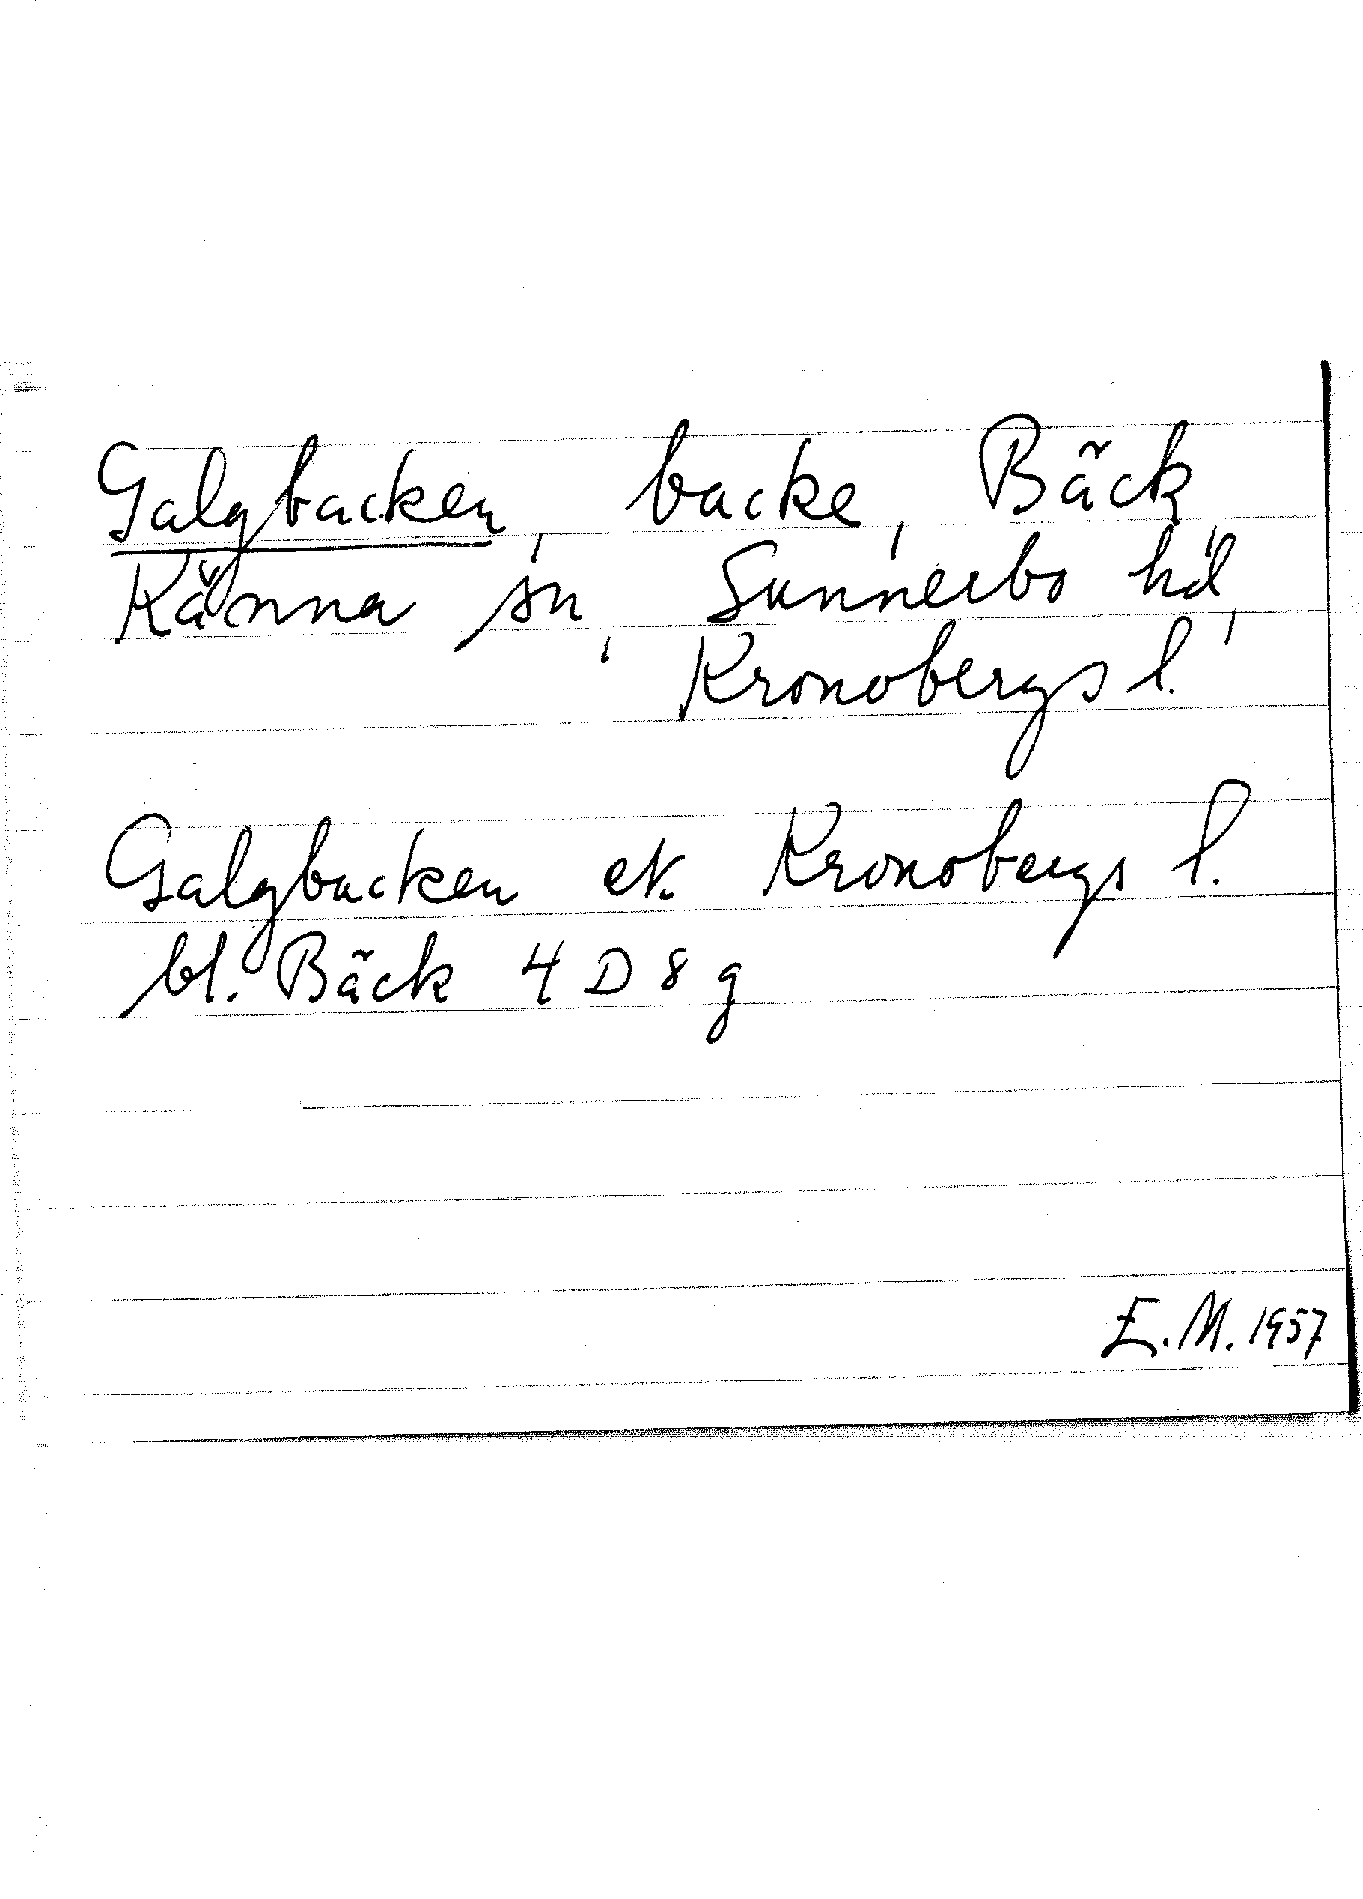 Galgbacken, backe, Bäck,
Känna sn, Sunnerbo hd,
Kronobergs l.
Galgbacken ek. Kronobergs l.
bl. Bäck 4 D 8 g
E.M. 1957